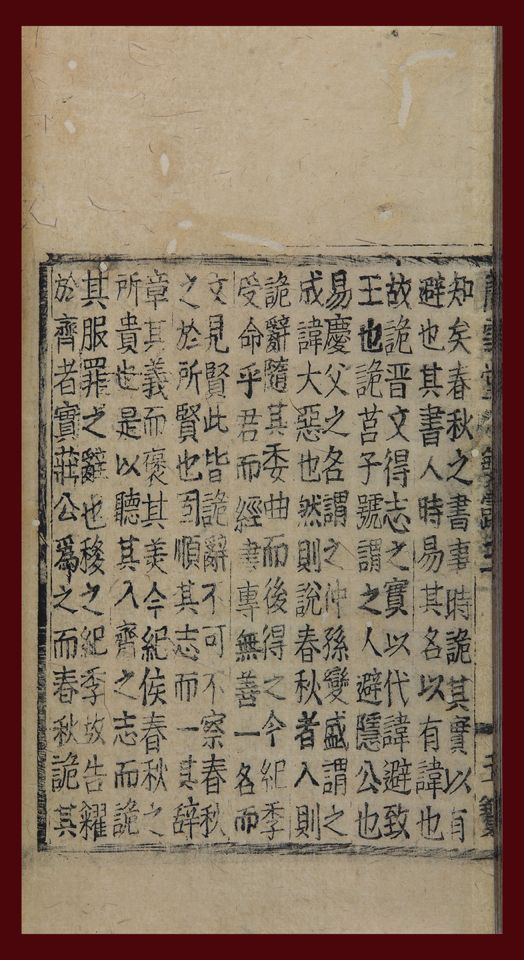 知矣春秋之書事時詭其實以有
避也其書人時易其名以有諱也
故詭晋文得志之實以代諱避致
王也詭莒子號謂之人避隱公也
易慶父之名謂之仲孫變盛謂之
成諱大惡也然則說春秋者入則
詭辭隨其委曲而後得之今紀季
受命乎君而經書專無善一名而
文見賢此皆詭辭不可不察春秋
之於所賢也固順其志而一其辞
章其義而褒其美今紀侯春秋之
所貴也是以聽其入齊之志而詭
其服罪之辭也移之紀季故告糴
於齊者實莊公爲之而春秋詭其